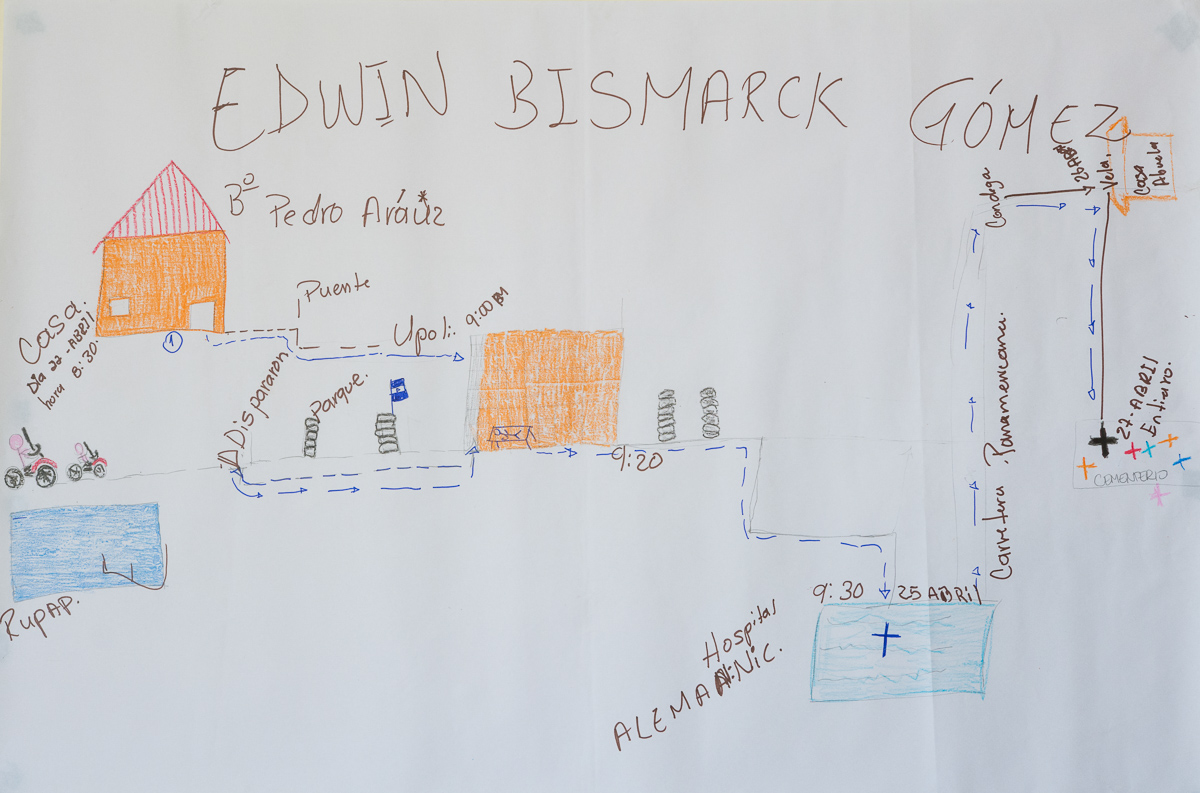 EDWIN BISMARCK GÓMEZ
Bº Pedro Aráuz
Casa.
Día 22-ABRIL
hora 8:30.
1
Puente
Upoli:
9:00 PM
Dispararon
Parque.
9:20
RUPAP.
9:30
25 ABRIL
Hospital
ALEMAN.NIC.
Carretera Panamericana.
Condega
26 ABR
Vela.
Casa
Abuela
27-ABRIL
Entierro.
CEMENTERIO